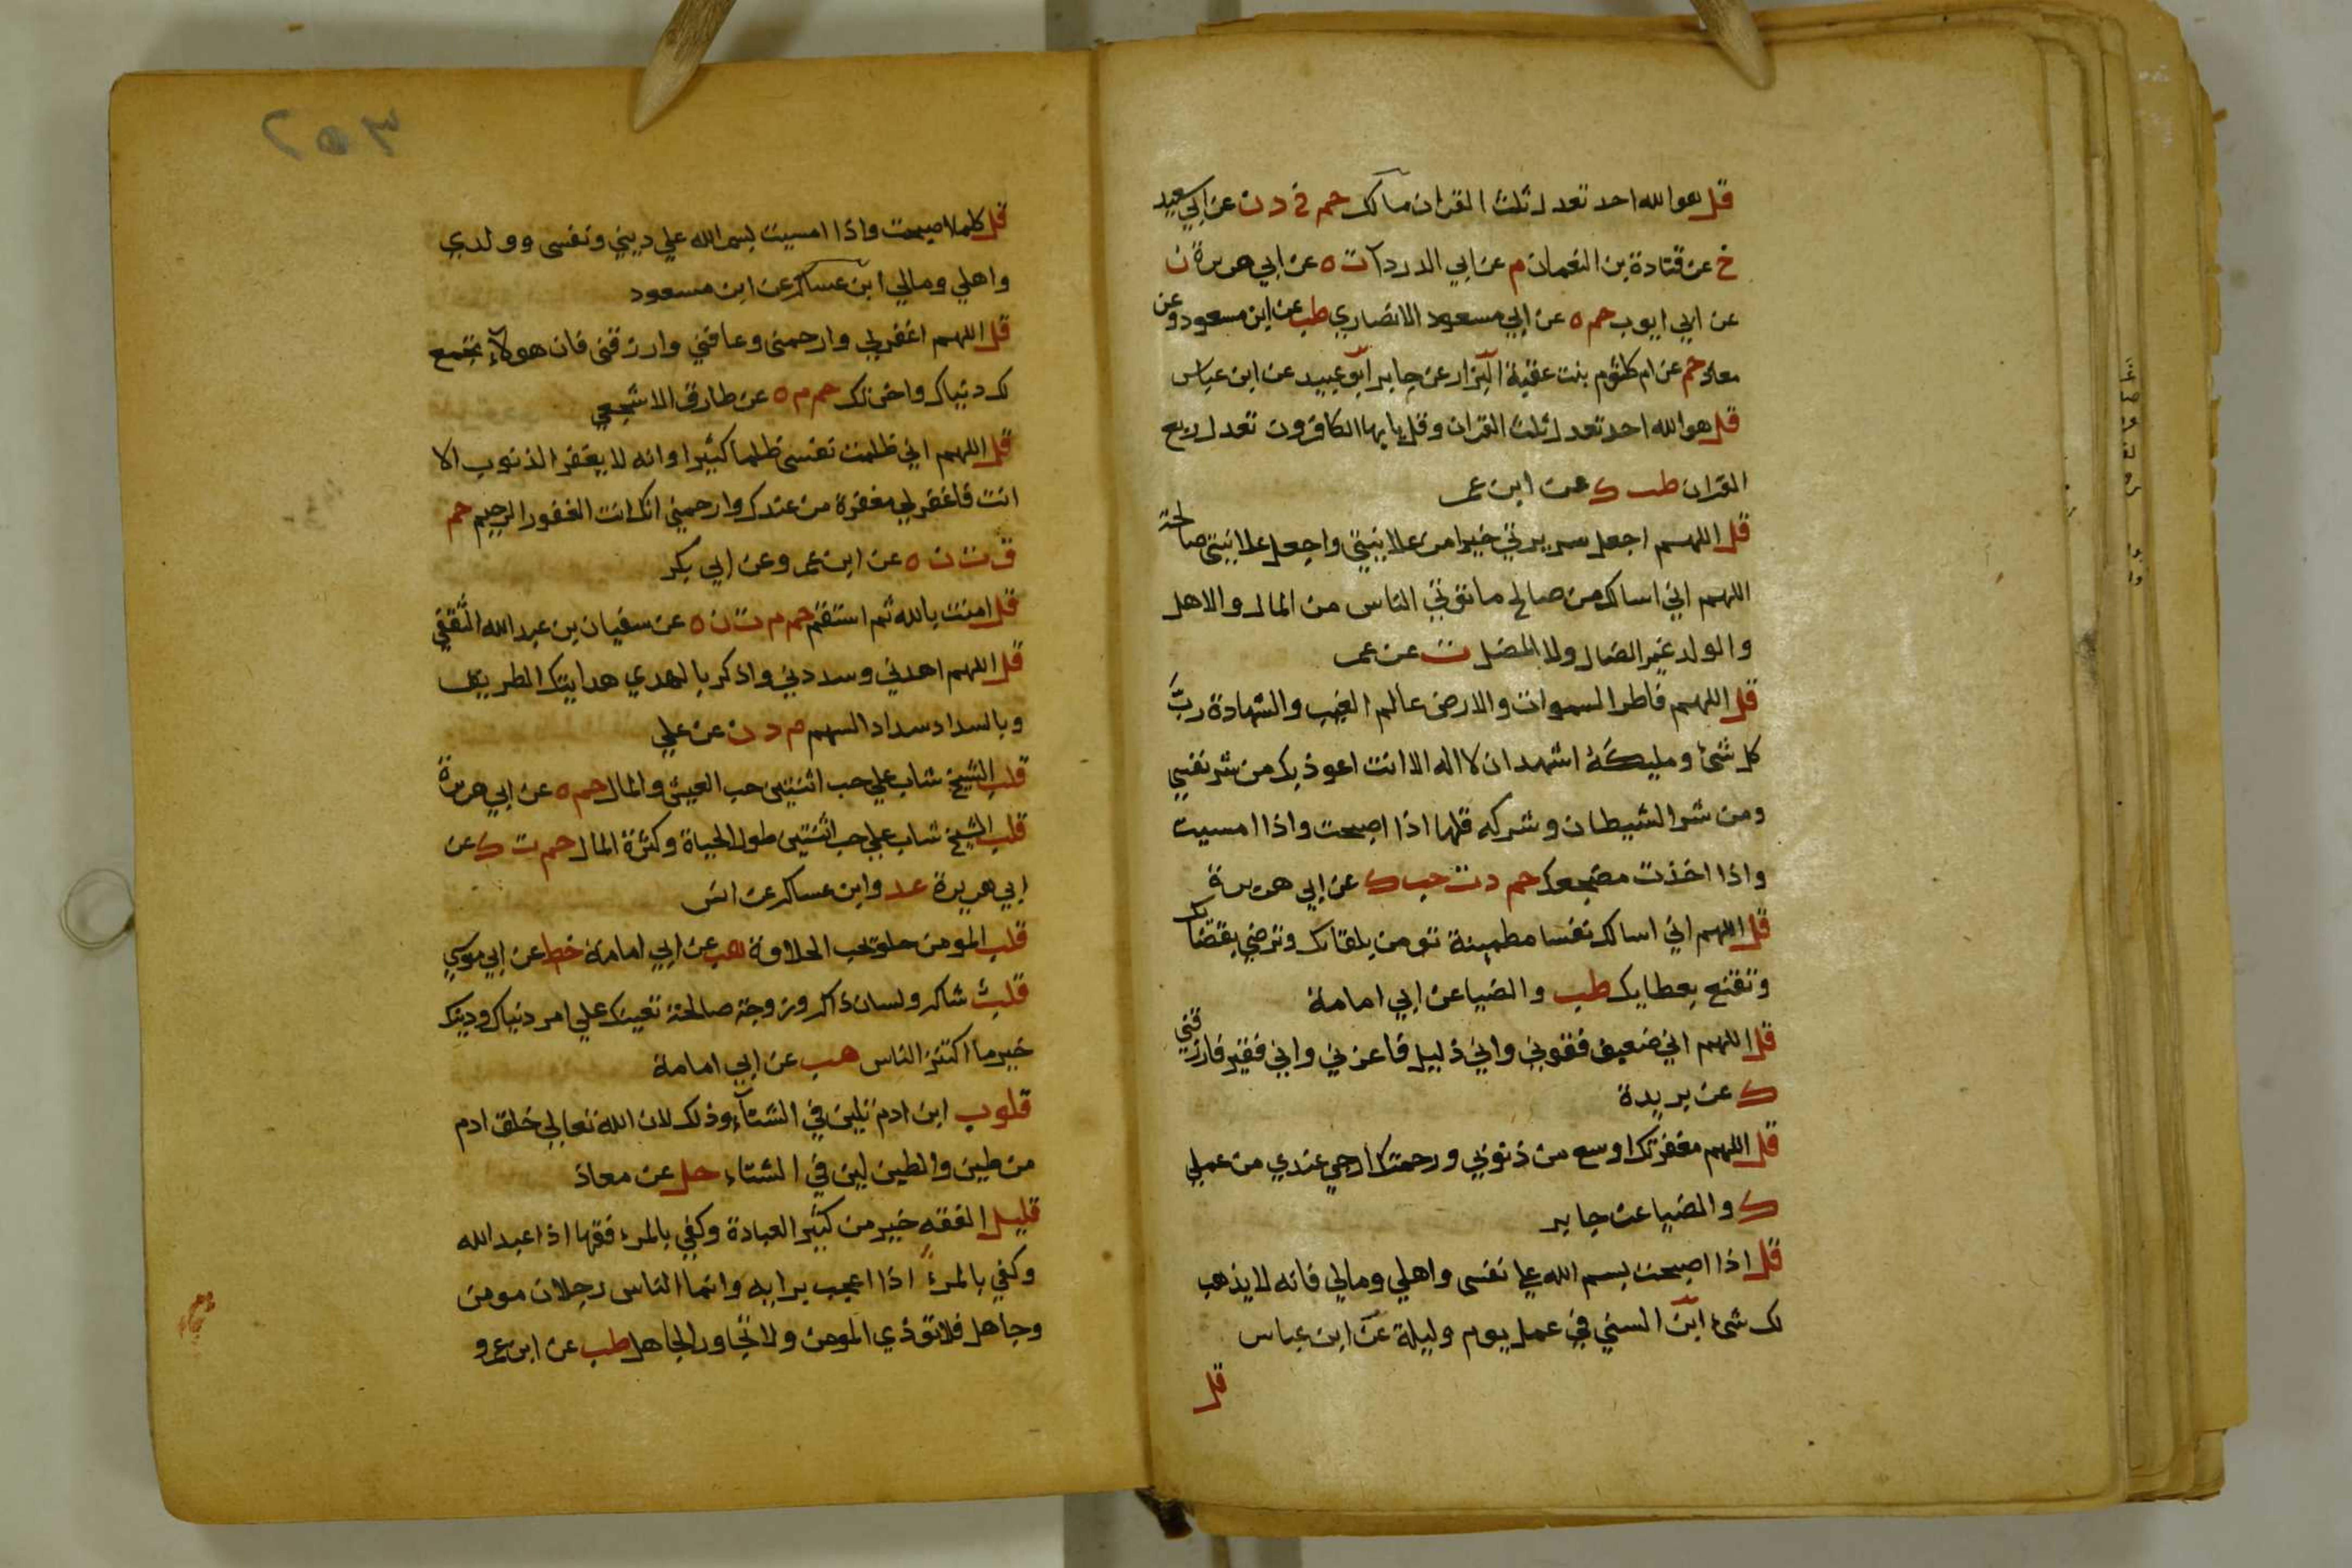 قل هو الله احد تعدل ثلث القران مالك حم خ د ن عن ابي سعيد
خ عن قتادة بن النعمان م عن ابي الدردآ ت ه عن ابي هريرة ن
عن ابي ايوب حم ه عن ابي مسعود الانصاري طب عن ابن مسعود وعن
معاذ حم عن ام كلثوم بنت عقبة البزار عن جابر ابو عبيد عن ابن عباس
قل هو الله احد تعدل ثلث القران وقل يا يها الكافرون تعدل ربع
القران طب ك عن ابن عمر
قل اللهم اجعل سريرتي خيرا من علانيتي واجعل علانيتي صالحة
اللهم اني اسالك من صالح ما تؤتي الناس من المال والاهل
والولد غير الضال ولا المضل ت عن عمر
قل اللهم فاطر السموات والارض عالم الغيب والشهادة ربَّ
كل شئ ومليكه اشهد ان لا اله الا انت اعوذ بك من شر نفسي
ومن شر الشيطان وشركه قلها اذا اصبحت واذا امسيت
واذا اخذت مضجعك حم د ت حب ك عن ابي هريرة
قل اللهم اني اسالك نفسا مطمينة تومن بلقائك وترضي بقضائك
وتقنع بعطايك طب والضيا عن ابي امامة
قل اللهم اني ضعيف فقوني واني ذليل فاعزني واني فقير فارزقني
ك عن بريدة
قل اللهم مغفرتك اوسع من ذنوبي ورحمتك ارجي عندي من عملي
ك والضيا عن جابر
قل اذا اصبحت بسم الله علي نفسي واهلي ومالي فانه لا يذهب
لك شئ ابن السني في عمل يوم وليلة عن ابن عباس
قل
٢٥٣
قل كلما اصبحت واذا امسيت بسم الله علي ديني ونفسي وولدي
واهلي ومالي ابن عساكر عن ابن مسعود
قل اللهم اغفر لي وارحمني وعافني وارزقني فان هولآء تجمع
لك دنياك واخرتك حم م ه عن طارق الاشجعي
قل اللهم اني ظلمت نفسي ظلما كثيرا وانه لا يغفر الذنوب الا
انت فاغفر لي مغفرة من عندك وارحمني انك انت الغفور الرحيم حم
ق ت ن ه عن ابن عمر وعن ابي بكر
قل امنت بالله ثم استقم حم م ت ن ه عن سفيان بن عبد الله الثقفي
قل اللهم اهدني وسددني واذكر بالهدي هدايتك الطريق
وبالسداد سداد السهم م د ن عن علي
قلب الشيخ شاب علي حب اثنتين حب العيش والمال حم ه عن ابي هريرة
قلب الشيخ شاب علي حب اثنتين طول الحياة وكثرة المال حم ت ك عن
ابي هريرة عد وابن عساكر عن انس
قلب المومن حلو يحب الحلاوة هب عن ابي امامة خط عن ابي موسي
قلب شاكر ولسان ذاكر وزوجة صالحة تعينك علي امر دنياك ودينك
خير ما اكتنز الناس هب عن ابي امامة
قلوب ابن ادم تلين في الشتآء وذلك لان الله تعالي خلق ادم
من طين والطين يلين في الشتاء حل عن معاذ
قليل الفقه خير من كثير العبادة وكفي بالمرء فقها اذا عبد الله
وكفي بالمرء اذا اعجب برايه وانما الناس رجلان مومن
وجاهل فلا تؤذي المومن ولا تجاور الجاهل طب عن ابن عمرو